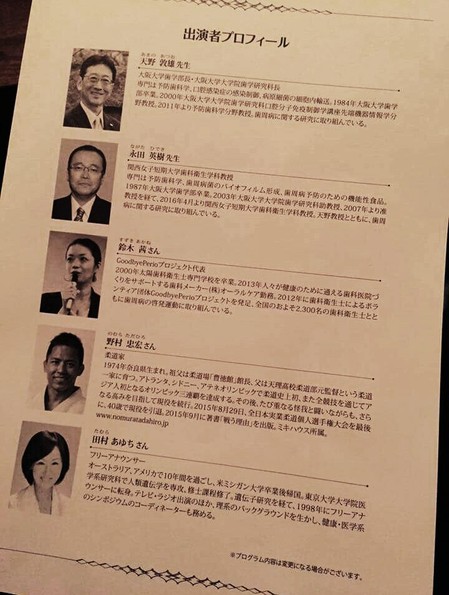 出演者プロフィール
あまの あつお
天野 敦雄 先生
大阪大学歯学部長・大阪大学大学院歯学研究科長
専門は予防歯科学、口腔感染症の感染制御、病原細菌の細胞内輸送。1984年大阪大学歯学
部卒業。2000年大阪大学大学院歯学研究科口腔分子免疫制御学講座先端機器情報学分
野教授。2011年より予防歯科学分野教授。歯周病に関する研究に取り組んでいる。
ながた ひでき
永田 英樹 先生
関西女子短期大学歯科衛生学科教授
専門は予防歯科学、歯周病菌のバイオフィルム形成、歯周病予防のための機能性食品。
1987年大阪大学歯学部卒業。2003年大阪大学大学院歯学研究科助教授、2007年より准
教授を経て、2016年4月より関西女子短期大学歯科衛生学科教授。天野教授とともに、歯周
病に関する研究に取り組んでいる。
すずき あかね
鈴木 茜 さん
GoodbyePerioプロジェクト代表
2000年太陽歯科衛生士専門学校を卒業。2013年人々が健康のために通える歯科医院づ
くりをサポートする歯科メーカー(株)オーラルケア勤務。2012年に歯科衛生士によるボラ
ンティア団体GoodbyePerioプロジェクトを発足。全国のおよそ2,300名の歯科衛生士とと
もに歯周病の啓発運動に取り組んでいる。
のむら ただひろ
野村 忠宏 さん
柔道家
1974年奈良県生まれ。祖父は柔道場「豊徳館」館長、父は天理高校柔道部元監督という柔道
一家に育つ。アトランタ、シドニー、アテネオリンピックで柔道史上初、また全競技を通じてア
ジア人初となるオリンピック三連覇を達成する。その後、たび重なる怪我と闘いながらも、さら
なる高みを目指して現役を続行。2015年8月29日、全日本実業柔道個人選手権大会を最後
に、40歳で現役を引退。2015年9月に著書「戦う理由」を出版。ミキハウス所属。
www.nomuratadahiro.jp
たむら
田村 あゆち さん
フリーアナウンサー
オーストラリア、アメリカで10年間を過ごし、米ミシガン大学卒業後帰国。東京大学大学院医
学系研究科で人類遺伝学を専攻。修士課程修了。遺伝子研究を経て、1998年にフリーアナ
ウンサーに転身。テレビ・ラジオ出演のほか、理系のバックグラウンドを生かし、健康・医学系
のシンポジウムのコーディネーターも務める。
※プログラム内容は変更になる場合がございます。